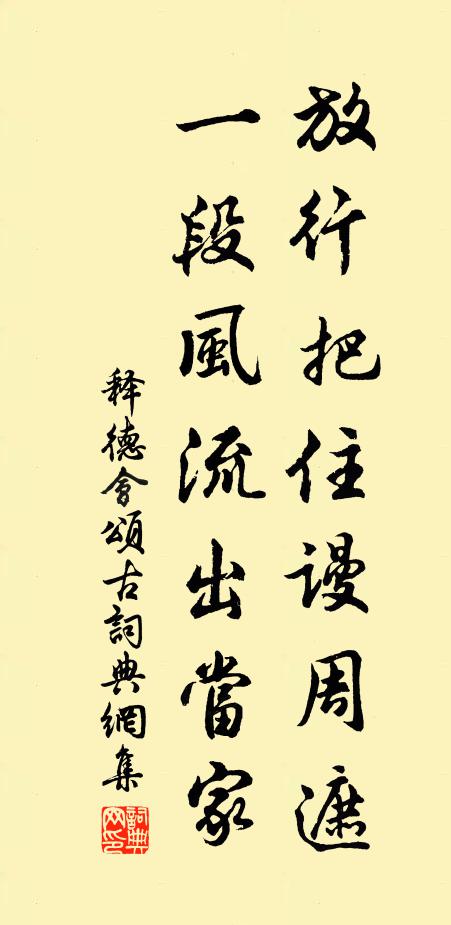 放行把住謾周遮
一段風流出當家
释德會頌古詞典網集
詞典網印